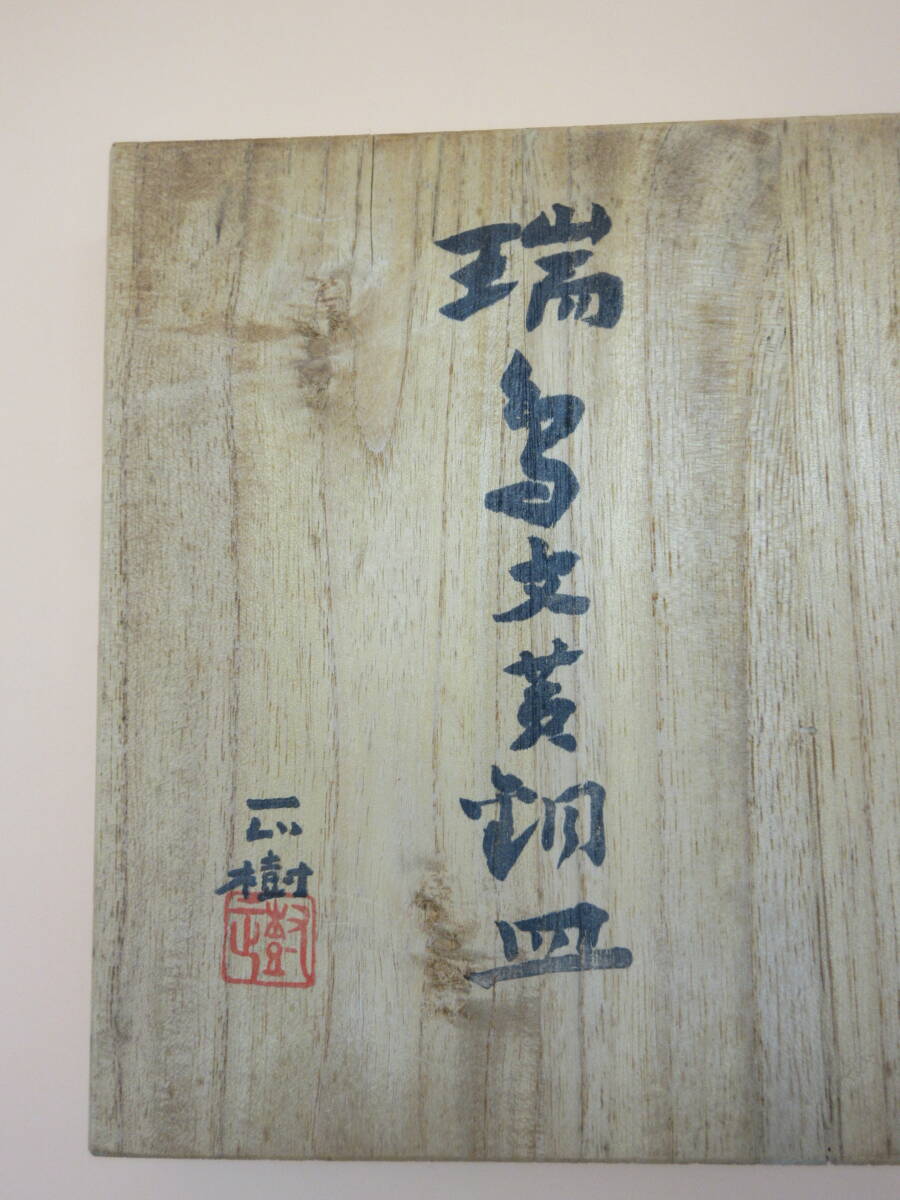 瑞鳥文黄銅皿
正樹
正樹